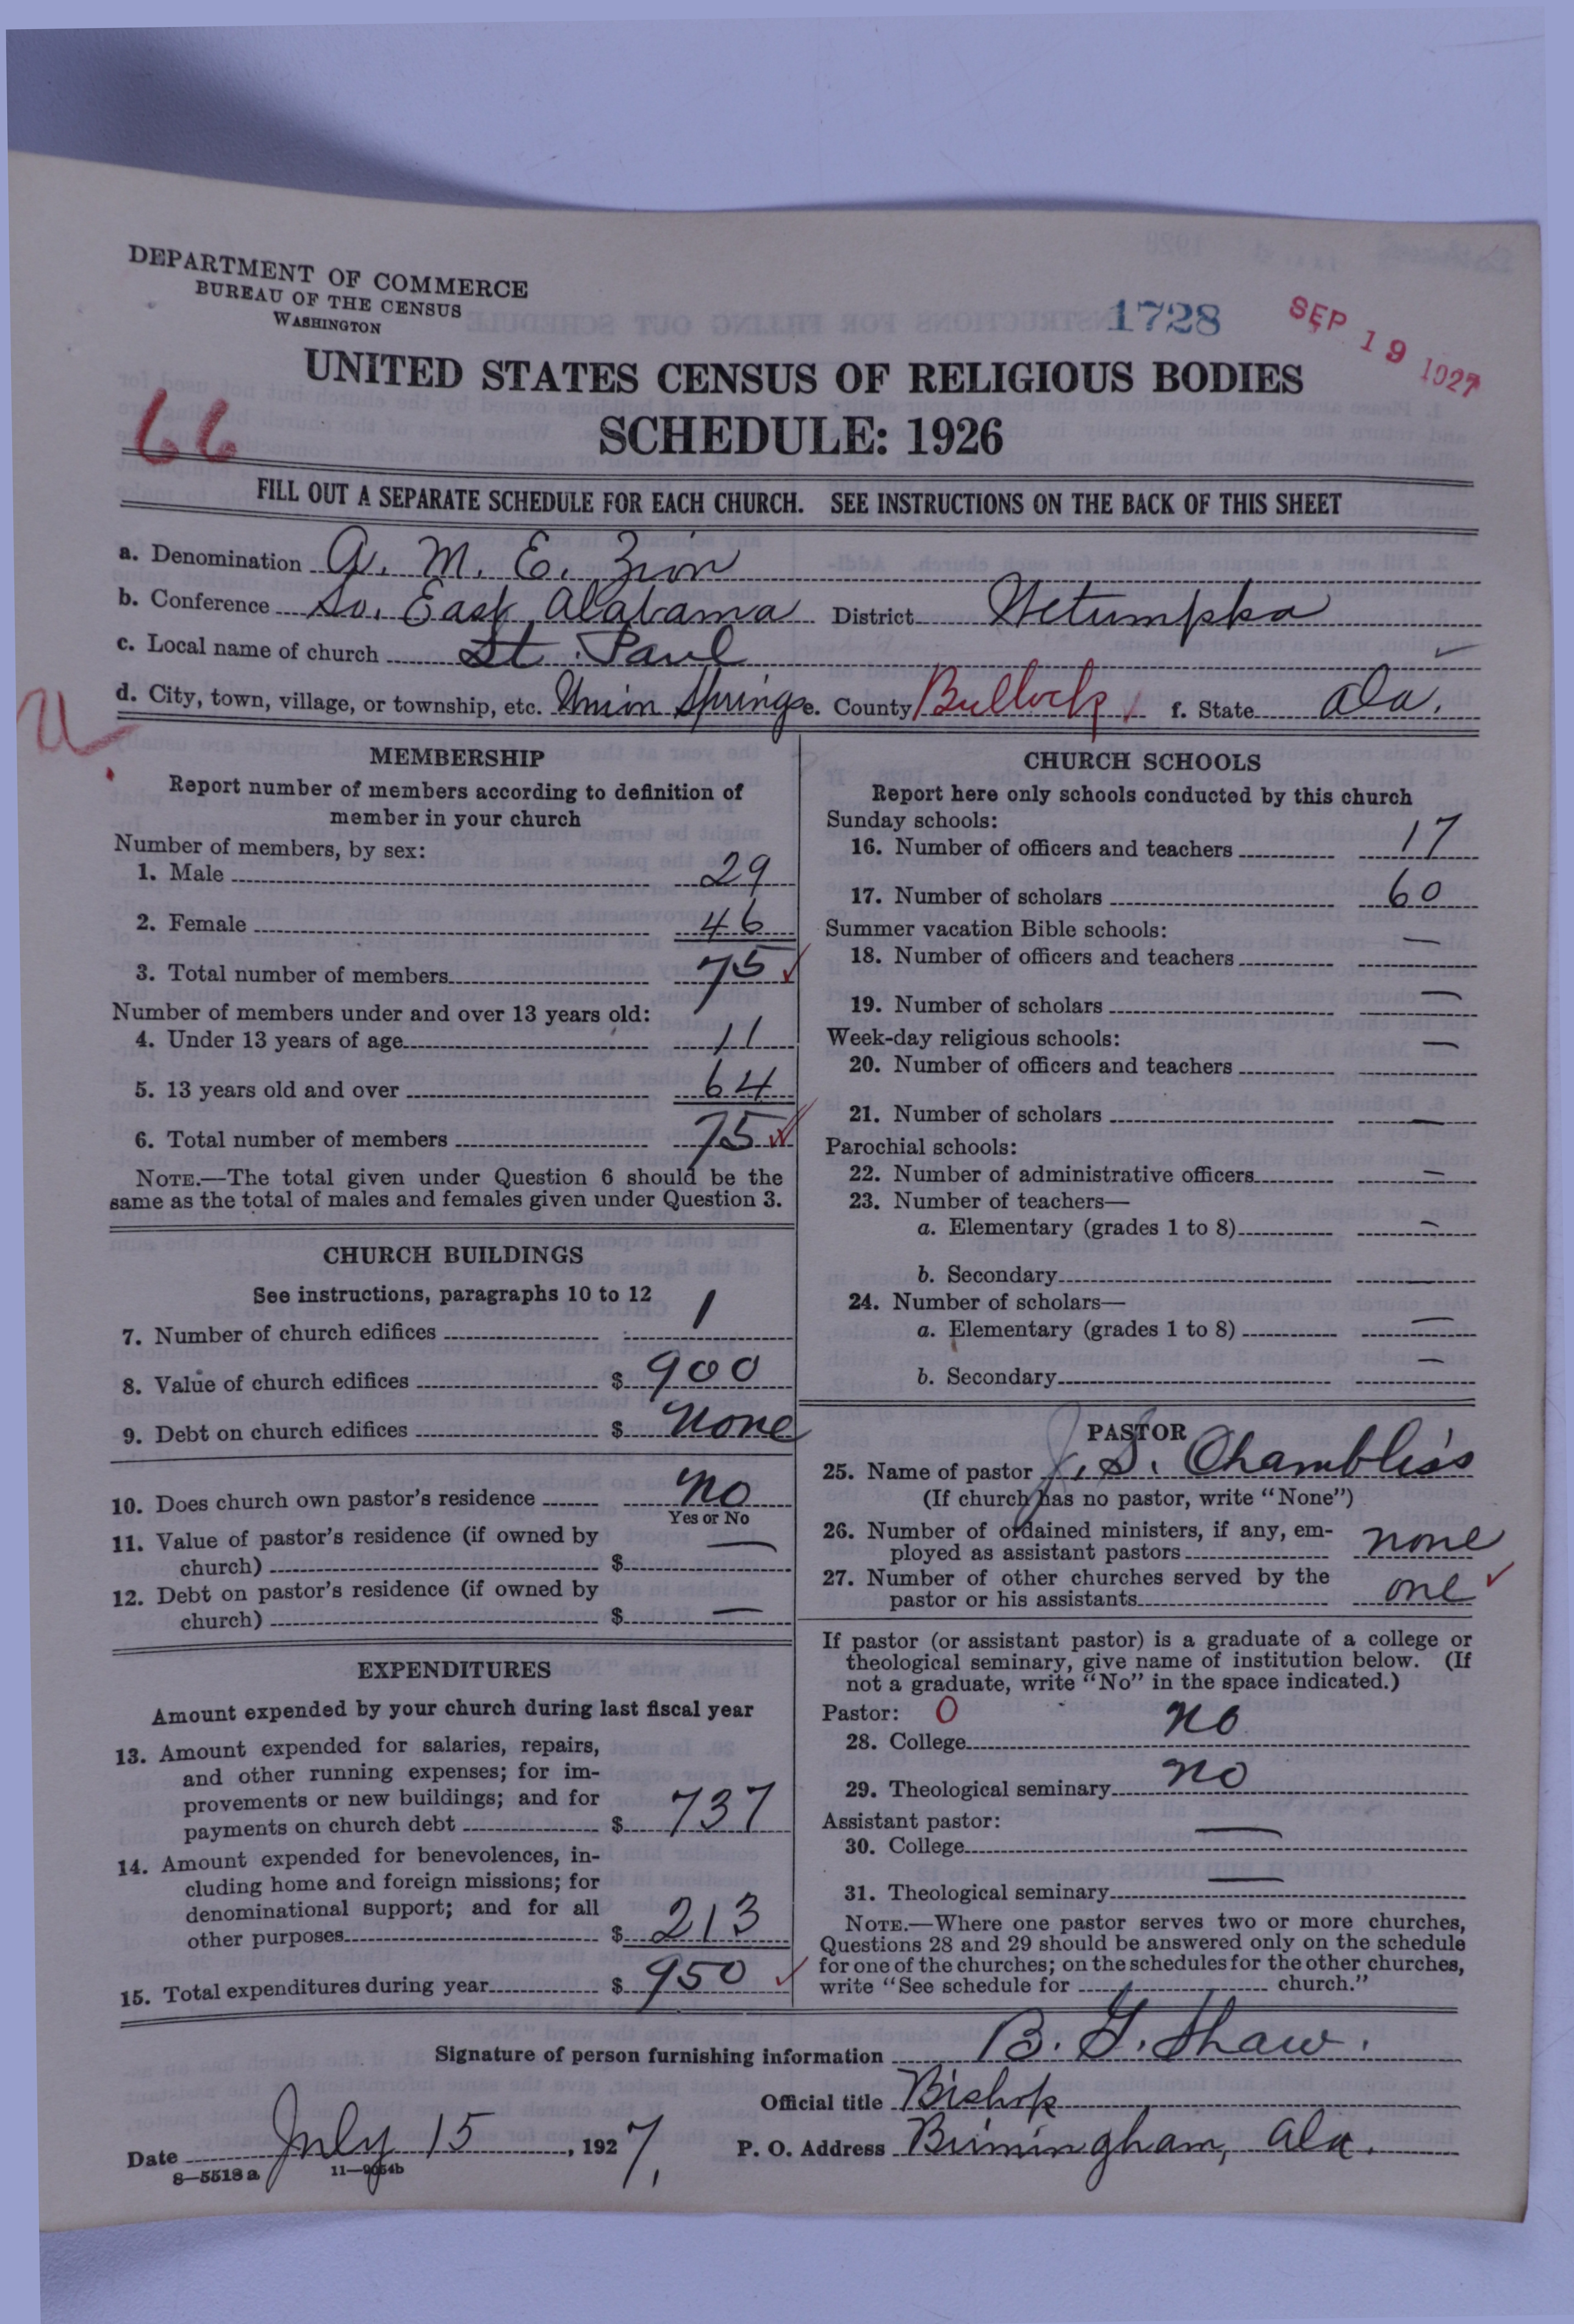 DEPARTMENT OF COMMERCE
BUREAU OF THE CENSUS
WASHINGTON
1728
SEP 19 1927
UNITED STATES CENSUS OF RELIGIOUS BODIES
66
SCHEDULE: 1926
FILL OUT A SEPARATE SCHEDULE FOR EACH CHURCH. SEE INSTRUCTIONS ON THE BACK OF THIS SHEET
a. Denomination A. M. E. Zion
b. Conference So. East Alabama District Wetumpka
c. Local name of church St. Paul
d. City, town, village, or township, etc. Union Springs e. County Bullock f. State Ala.
MEMBERSHIP
Report number of members according to definition of
member in your church
Number of members, by sex:
1. Male 29
2. Female 46
3. Total number of members 75
Number of members under and over 13 years old:
4. Under 13 years of age 11
5. 13 years old and over 64
6. Total number of members 75
NOTE.—The total given under Question 6 should be the
same as the total of males and females given under Question 3.
CHURCH BUILDINGS
See instructions, paragraphs 10 to 12
7. Number of church edifices 1
8. Value of church edifices $ 900
9. Debt on church edifices $ None
10. Does church own pastor's residence No
Yes or No
11. Value of pastor's residence (if owned by
church) $ —
12. Debt on pastor's residence (if owned by
church) $ —
EXPENDITURES
Amount expended by your church during last fiscal year
13. Amount expended for salaries, repairs,
and other running expenses; for im-
provements or new buildings; and for
payments on church debt $ 737
14. Amount expended for benevolences, in-
cluding home and foreign missions; for
denominational support; and for all
other purposes $ 213
15. Total expenditures during year $ 950
CHURCH SCHOOLS
Report here only schools conducted by this church
Sunday schools:
16. Number of officers and teachers 17
17. Number of scholars 60
Summer vacation Bible schools:
18. Number of officers and teachers —
19. Number of scholars —
Week-day religious schools:
20. Number of officers and teachers —
21. Number of scholars —
Parochial schools:
22. Number of administrative officers —
23. Number of teachers—
a. Elementary (grades 1 to 8) —
b. Secondary —
24. Number of scholars—
a. Elementary (grades 1 to 8) —
b. Secondary —
PASTOR
25. Name of pastor J. S. Chambliss
(If church has no pastor, write "None")
26. Number of ordained ministers, if any, em-
ployed as assistant pastors none
27. Number of other churches served by the
pastor or his assistants one
If pastor (or assistant pastor) is a graduate of a college or
theological seminary, give name of institution below. (If
not a graduate, write "No" in the space indicated.)
Pastor: 0
28. College no
29. Theological seminary no
Assistant pastor:
30. College —
31. Theological seminary —
NOTE.—Where one pastor serves two or more churches,
Questions 28 and 29 should be answered only on the schedule
for one of the churches; on the schedules for the other churches,
write "See schedule for church."
Signature of person furnishing information B. G. Shaw.
Official title Bishop
Date July 15, 1927. P. O. Address Birmingham, Ala.
8—5513 a 11—9054b